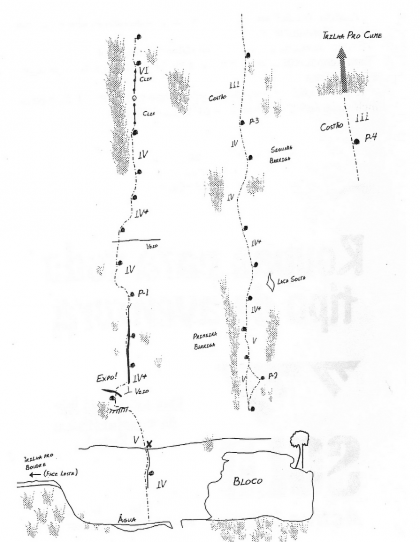 VI
CLIF
CLIF
IV
IV+
VEIO
IV
P-1
EXPO!
IV+
VEIO
V
IV
TRILHA PRO
← (FACE LESTE)
ÁGUA
BLOCO
III
COSTÃO
P-3
IV
SEGUNDA
BARRIGA
IV
IV+
LACA SOLTA
IV+
PRIMEIRA
BARRIGA
V
V
P-2
TRILHA PRO CUME
COSTÃO III
P-4